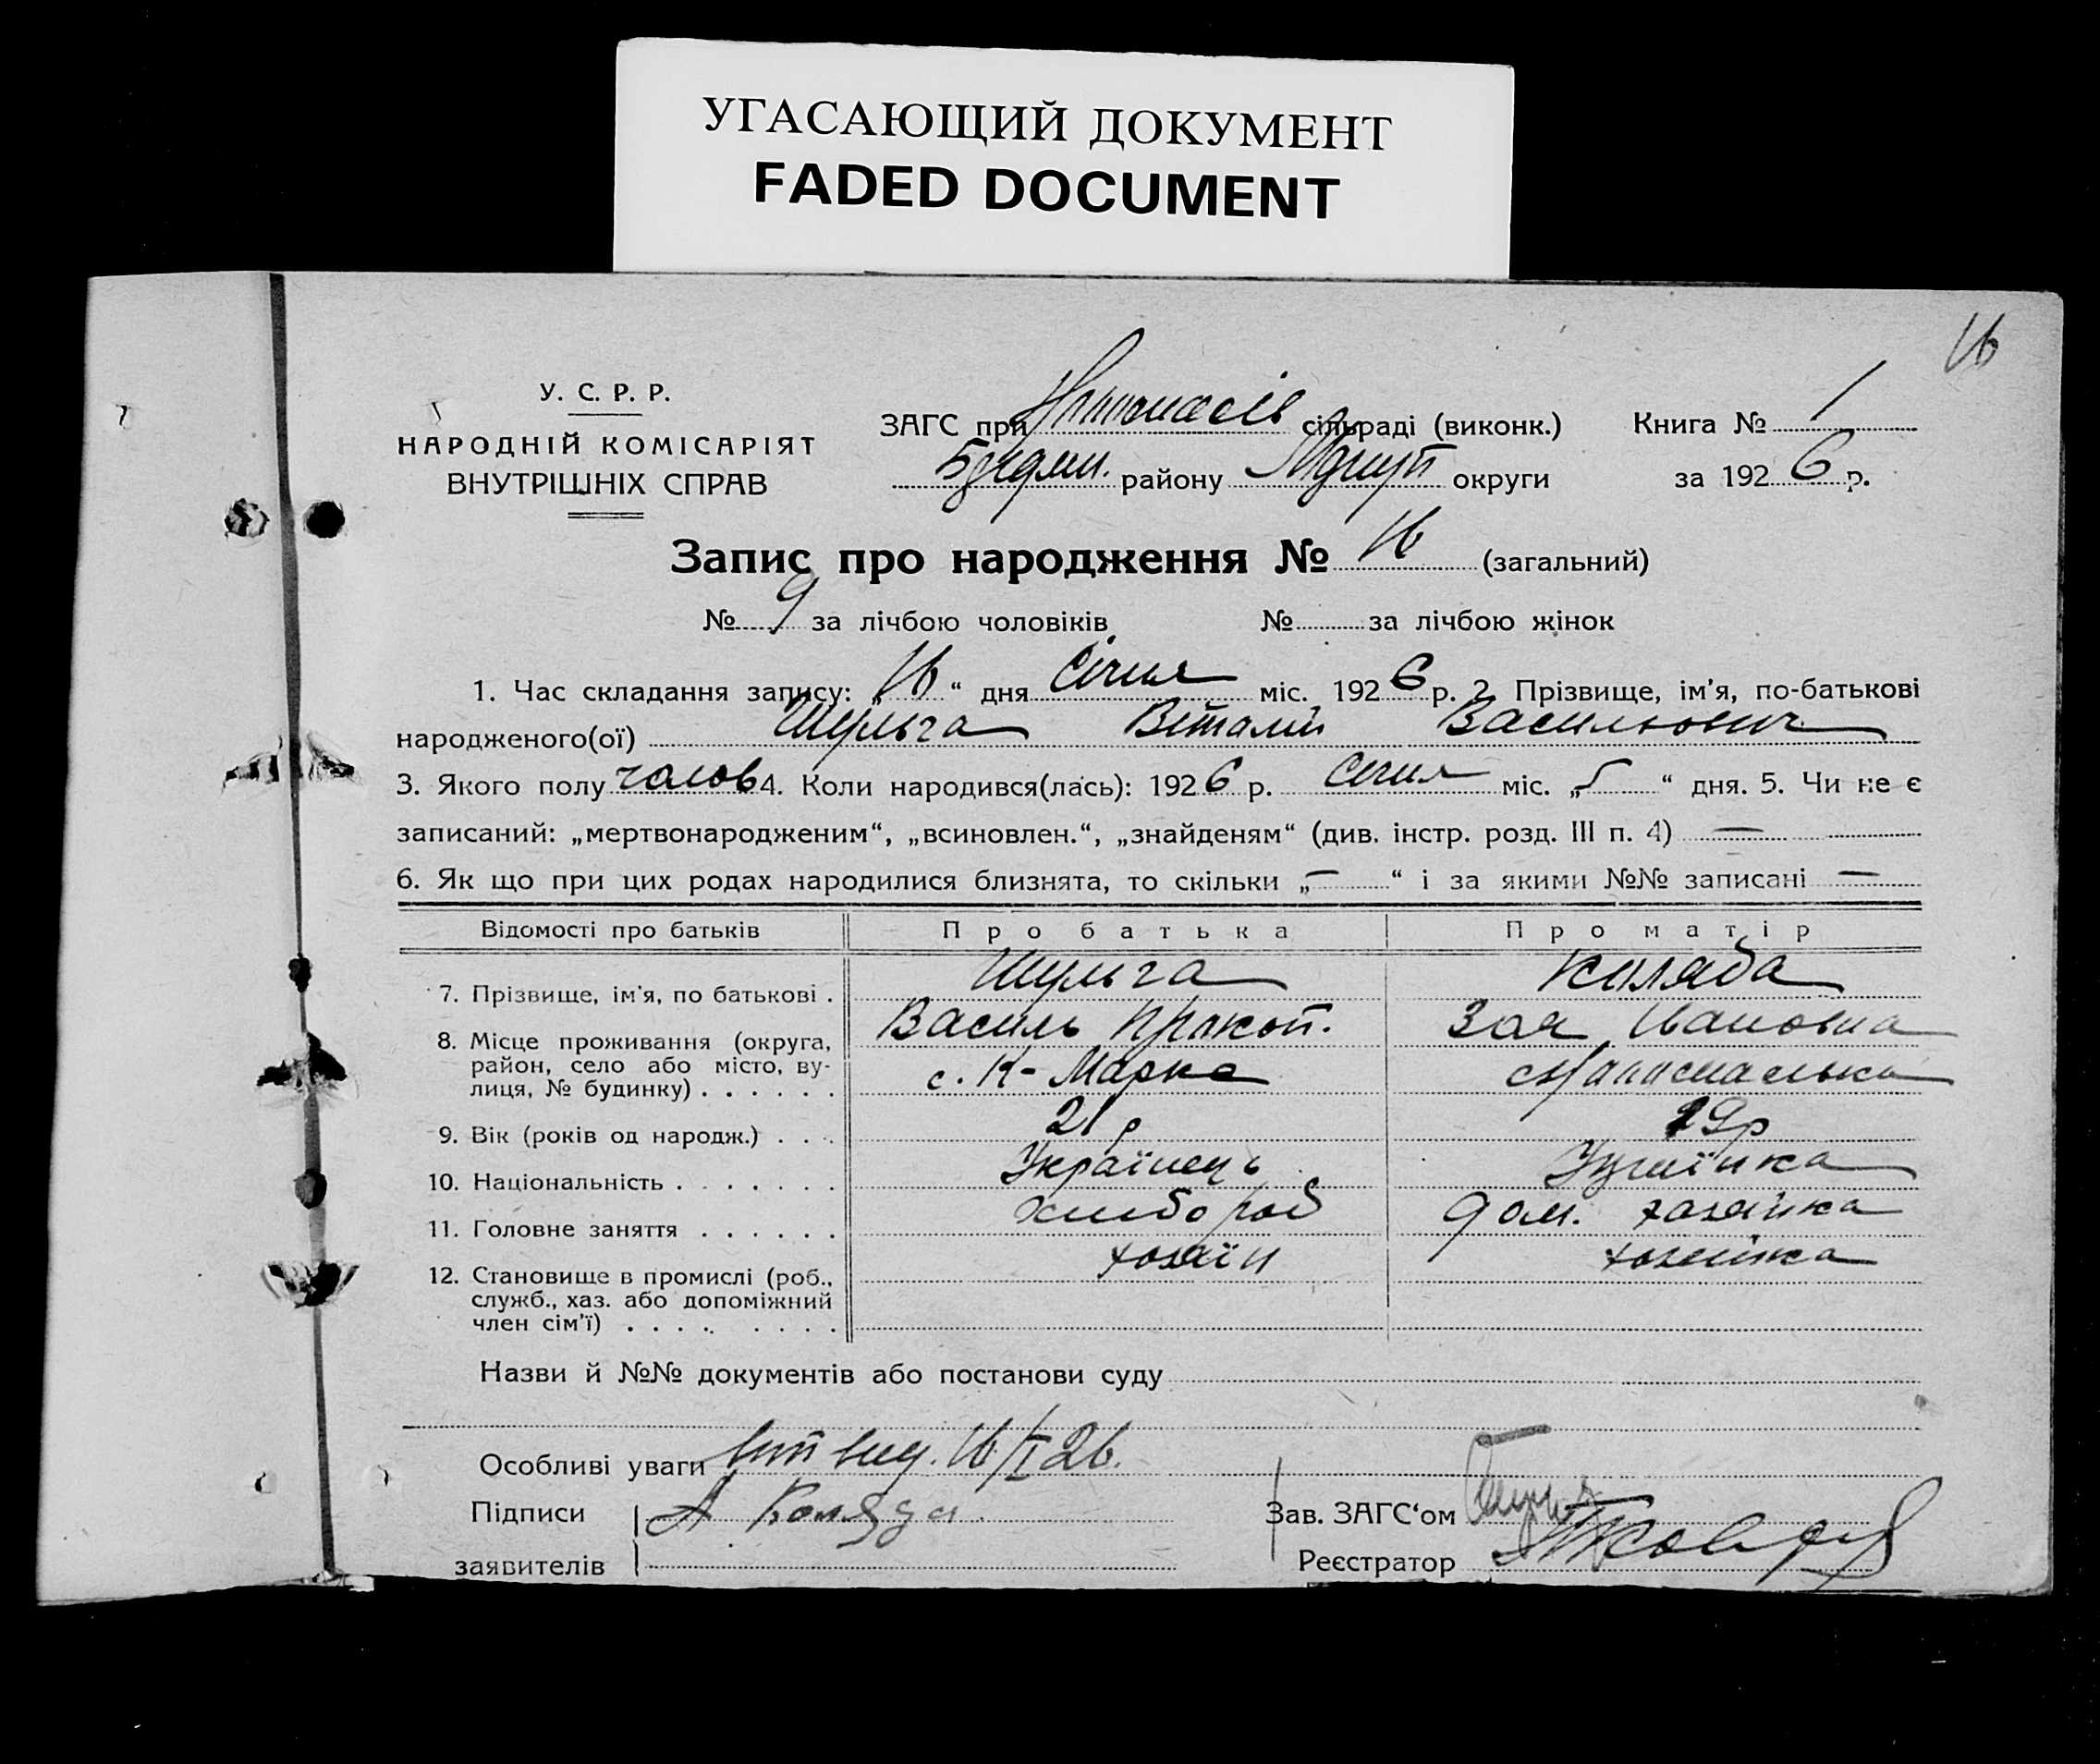 УГАСАЮЩИЙ ДОКУМЕНТ
FADED DOCUMENT
16
У. С. Р. Р.
НАРОДНІЙ КОМІСАРІЯТ
ВНУТРІШНІХ СПРАВ
ЗАГС при сільраді (виконк.)
району округи
Книга № 1
за 1926 р.
Запис про народження № 16 (загальний)
№ 9 за лічбою чоловіків № за лічбою жінок
1. Час складання запису: „16“ дня Січня міс. 1926 р. 2. Прізвище, ім'я, по-батькові
народженого(ої) Шульга Віталій Васильович
3. Якого полу чолов 4. Коли народився(лась): 1926 р. Січня міс. „5“ дня. 5. Чи не є
записаний: „мертвонародженим“, „всиновлен.“, „знайденям“ (див. інстр. розд. III п. 4) —
6. Як що при цих родах народилися близнята, то скільки „—“ і за якими №№ записані —
Відомості про батьків Про батька Про матір
7. Прізвище, ім'я, по батькові . Шульга Коляда
Василь Прокоп. Зоя Івановна
8. Місце проживання (округа, район, село або місто, вулиця, № будинку) . . . . . . с. К-Марка
9. Вік (років од народж.) . . . 21 р 19р
10. Національність . . . . . . . Українець Українка
11. Головне заняття . . . . . . Хлибороб дом. хазяйка
12. Становище в промислі (роб., служб., хаз. або допоміжний член сім'ї) . . . . . . . . хозяїн хозяйка
Назви й №№ документів або постанови суду
Особливі уваги 16/I 26.
Підписи А Коляда
заявителів
Зав. ЗАГС'ом
Реєстратор